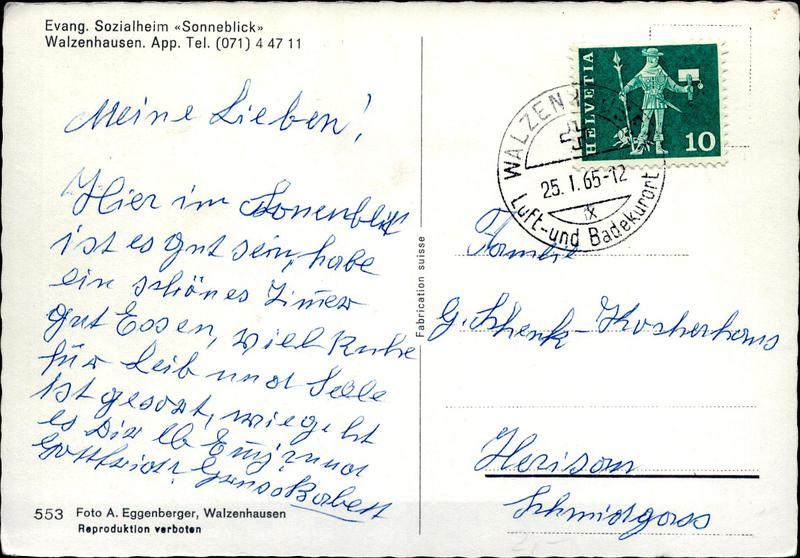 Evang. Sozialheim «Sonneblick»
Walzenhausen. App. Tel. (071) 4 47 11
Meine Lieben!
Hier im Sonnenblick
ist es gut sein, habe
ein schönes Zimer
gut Essen, viel Ruhe
für Leib und Selle
ist gesorgt, wie geht
es Dir lb und
Gottfried? Gruss Babett
553 Foto A. Eggenberger, Walzenhausen
Reproduktion verboten
Fabrication suisse
HELVETIA
10
WALZENHAUSEN
25.I.65-12
IX
Luft-und Badekurort
Familie
G. Schenk-Kosherhans
Herisau
Schmidgass